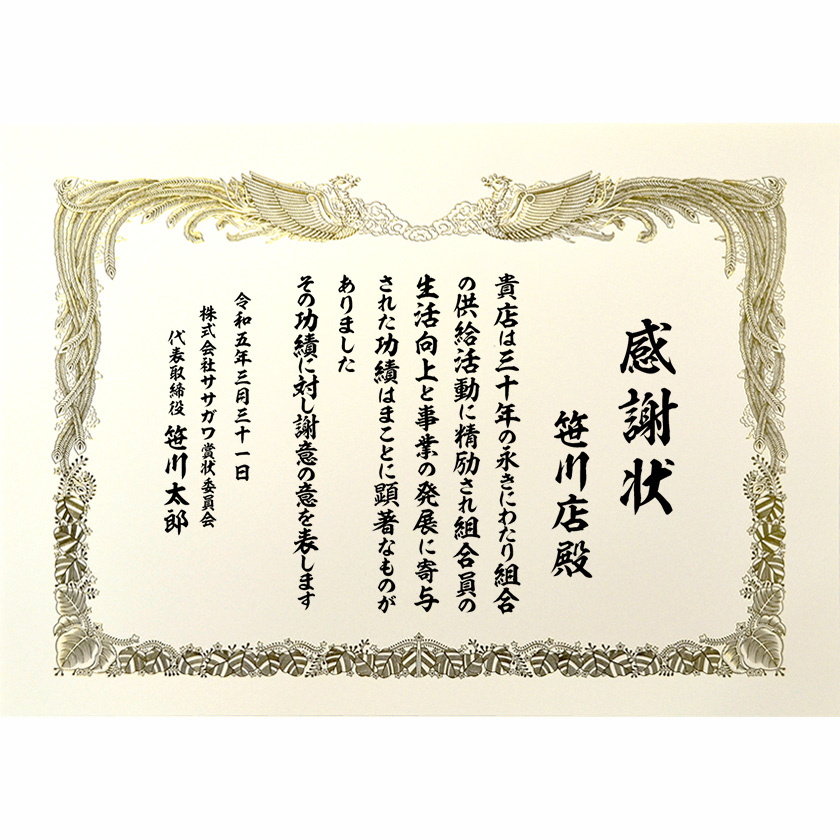 感謝状
笹川店殿
貴店は三十年の永きにわたり組合
の供給活動に精励され組合員の
生活向上と事業の発展に寄与
された功績はまことに顕著なものが
ありました
その功績に対し謝意の意を表します
令和五年三月三十一日
株式会社ササガワ賞状委員会
代表取締役 笹川太郎